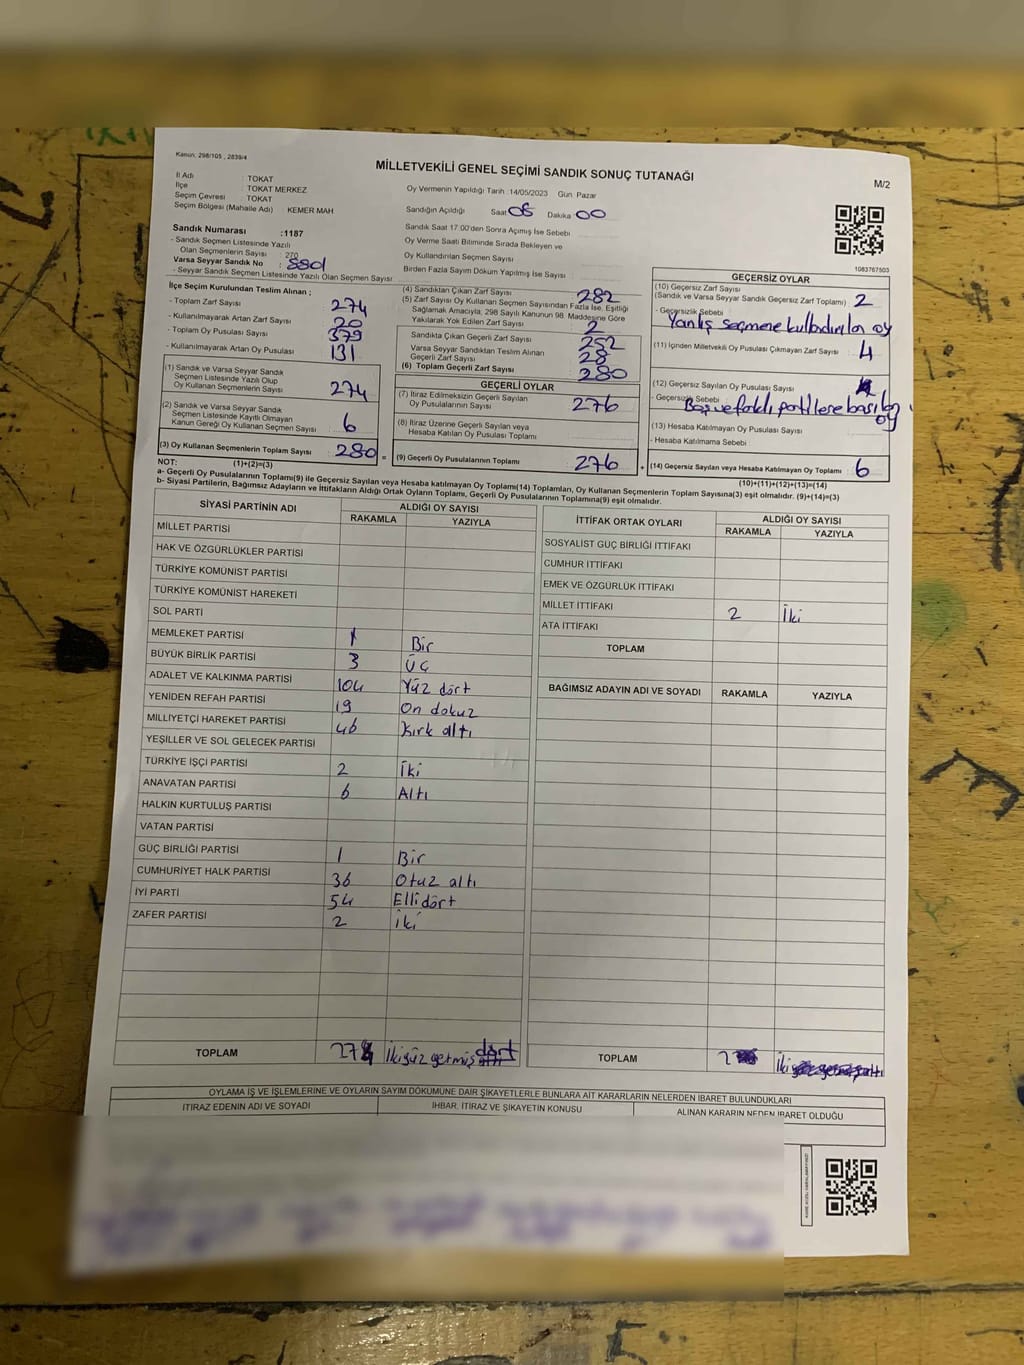 Kanun: 298/105 , 2839/4
MİLLETVEKİLİ GENEL SEÇİMİ SANDIK SONUÇ TUTANAĞI
M/2
İl Adı : TOKAT
İlçe : TOKAT MERKEZ
Seçim Çevresi : TOKAT
Seçim Bölgesi (Mahalle Adı) : KEMER MAH
Oy Vermenin Yapıldığı Tarih :14/05/2023 Gün Pazar
Sandığın Açıldığı Saat 08 Dakika 00
Sandık Numarası :1187
- Sandık Seçmen Listesinde Yazılı
Olan Seçmenlerin Sayısı : 270
Varsa Seyyar Sandık No :
- Seyyar Sandık Seçmen Listesinde Yazılı Olan Seçmen Sayısı
Sandık Saat 17:00'den Sonra Açımış İse Sebebi
Oy Verme Saati Bitiminde Sırada Bekleyen ve
Oy Kullandırılan Seçmen Sayısı
Birden Fazla Sayım Döküm Yapılmış İse Sayısı
1083767503
İlçe Seçim Kurulundan Teslim Alınan ;
- Toplam Zarf Sayısı 274
- Kullanılmayarak Artan Zarf Sayısı 20
- Toplam Oy Pusulası Sayısı 379
- Kullanılmayarak Artan Oy Pusulası 131
(1) Sandık ve Varsa Seyyar Sandık
Seçmen Listesinde Yazılı Olup
Oy Kullanan Seçmenlerin Sayısı 274
(2) Sandık ve Varsa Seyyar Sandık
Seçmen Listesinde Kayıtlı Olmayan
Kanun Gereği Oy Kullanan Seçmen Sayısı 6
(3) Oy Kullanan Seçmenlerin Toplam Sayısı 280 =
(4) Sandıktan Çıkan Zarf Sayısı 282
(5) Zarf Sayısı Oy Kullanan Seçmen Sayısından Fazla İse, Eşitliği
Sağlamak Amacıyla, 298 Sayılı Kanunun 98. Maddesine Göre
Yakılarak Yok Edilen Zarf Sayısı 2
Sandıkta Çıkan Geçerli Zarf Sayısı 252
Varsa Seyyar Sandıktan Teslim Alınan
Geçerli Zarf Sayısı 28
(6) Toplam Geçerli Zarf Sayısı 280
GEÇERLİ OYLAR
(7) İtiraz Edilmeksizin Geçerli Sayılan
Oy Pusulalarının Sayısı 276
(8) İtiraz Üzerine Geçerli Sayılan veya
Hesaba Katılan Oy Pusulası Toplamı
(9) Geçerli Oy Pusulalarının Toplamı 276 +
GEÇERSİZ OYLAR
(10) Geçersiz Zarf Sayısı
(Sandık ve Varsa Seyyar Sandık Geçersiz Zarf Toplamı) 2
- Geçersizlik Sebebi
Yanlış seçmene kullandırılan oy
(11) İçinden Milletvekili Oy Pusulası Çıkmayan Zarf Sayısı 4
(12) Geçersiz Sayılan Oy Pusulası Sayısı
- Geçersizlik Sebebi
Boş ve farklı partilere basılan
oy
(13) Hesaba Katılmayan Oy Pusulası Sayısı
- Hesaba Katılmama Sebebi
(14) Geçersiz Sayılan veya Hesaba Katılmayan Oy Toplamı 6
NOT: (1)+(2)=(3)
(10)+(11)+(12)+(13)=(14)
a- Geçerli Oy Pusulalarının Toplamı(9) ile Geçersiz Sayılan veya Hesaba katılmayan Oy Toplamı(14) Toplamları, Oy Kullanan Seçmenlerin Toplam Sayısına(3) eşit olmalıdır. (9)+(14)=(3)
b- Siyasi Partilerin, Bağımsız Adayların ve İttifakların Aldığı Ortak Oyların Toplamı, Geçerli Oy Pusulalarının Toplamına(9) eşit olmalıdır.
SİYASİ PARTİNİN ADI ALDIĞI OY SAYISI
RAKAMLA YAZIYLA
MİLLET PARTİSİ
HAK VE ÖZGÜRLÜKLER PARTİSİ
TÜRKİYE KOMÜNİST PARTİSİ
TÜRKİYE KOMÜNİST HAREKETİ
SOL PARTİ
MEMLEKET PARTİSİ 1 Bir
BÜYÜK BİRLİK PARTİSİ 3 Üç
ADALET VE KALKINMA PARTİSİ 104 Yüz dört
YENİDEN REFAH PARTİSİ 19 On dokuz
MİLLİYETÇİ HAREKET PARTİSİ 46 Kırk altı
YEŞİLLER VE SOL GELECEK PARTİSİ
TÜRKİYE İŞÇİ PARTİSİ 2 İki
ANAVATAN PARTİSİ 6 Altı
HALKIN KURTULUŞ PARTİSİ
VATAN PARTİSİ
GÜÇ BİRLİĞİ PARTİSİ 1 Bir
CUMHURİYET HALK PARTİSİ 36 Otuz altı
İYİ PARTİ 54 Elli dört
ZAFER PARTİSİ 2 İki
TOPLAM 274 İkiyüz yetmiş dört
İTTİFAK ORTAK OYLARI ALDIĞI OY SAYISI
RAKAMLA YAZIYLA
SOSYALİST GÜÇ BİRLİĞİ İTTİFAKI
CUMHUR İTTİFAKI
EMEK VE ÖZGÜRLÜK İTTİFAKI
MİLLET İTTİFAKI 2 İki
ATA İTTİFAKI
TOPLAM
BAĞIMSIZ ADAYIN ADI VE SOYADI RAKAMLA YAZIYLA
TOPLAM 2 İki
OYLAMA İŞ VE İŞLEMLERİNE VE OYLARIN SAYIM DÖKÜMÜNE DAİR ŞİKAYETLERLE BUNLARA AİT KARARLARIN NELERDEN İBARET BULUNDUKLARI
İTİRAZ EDENİN ADI VE SOYADI İHBAR, İTİRAZ VE ŞİKAYETİN KONUSU ALINAN KARARIN NEDEN İBARET OLDUĞU